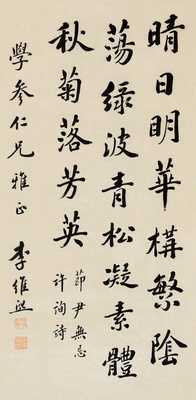 晴日明華構繁陰
蕩綠波青松凝素體
秋菊落芳英
尹無忌
許詢詩
學參仁兄雅正
李維熙